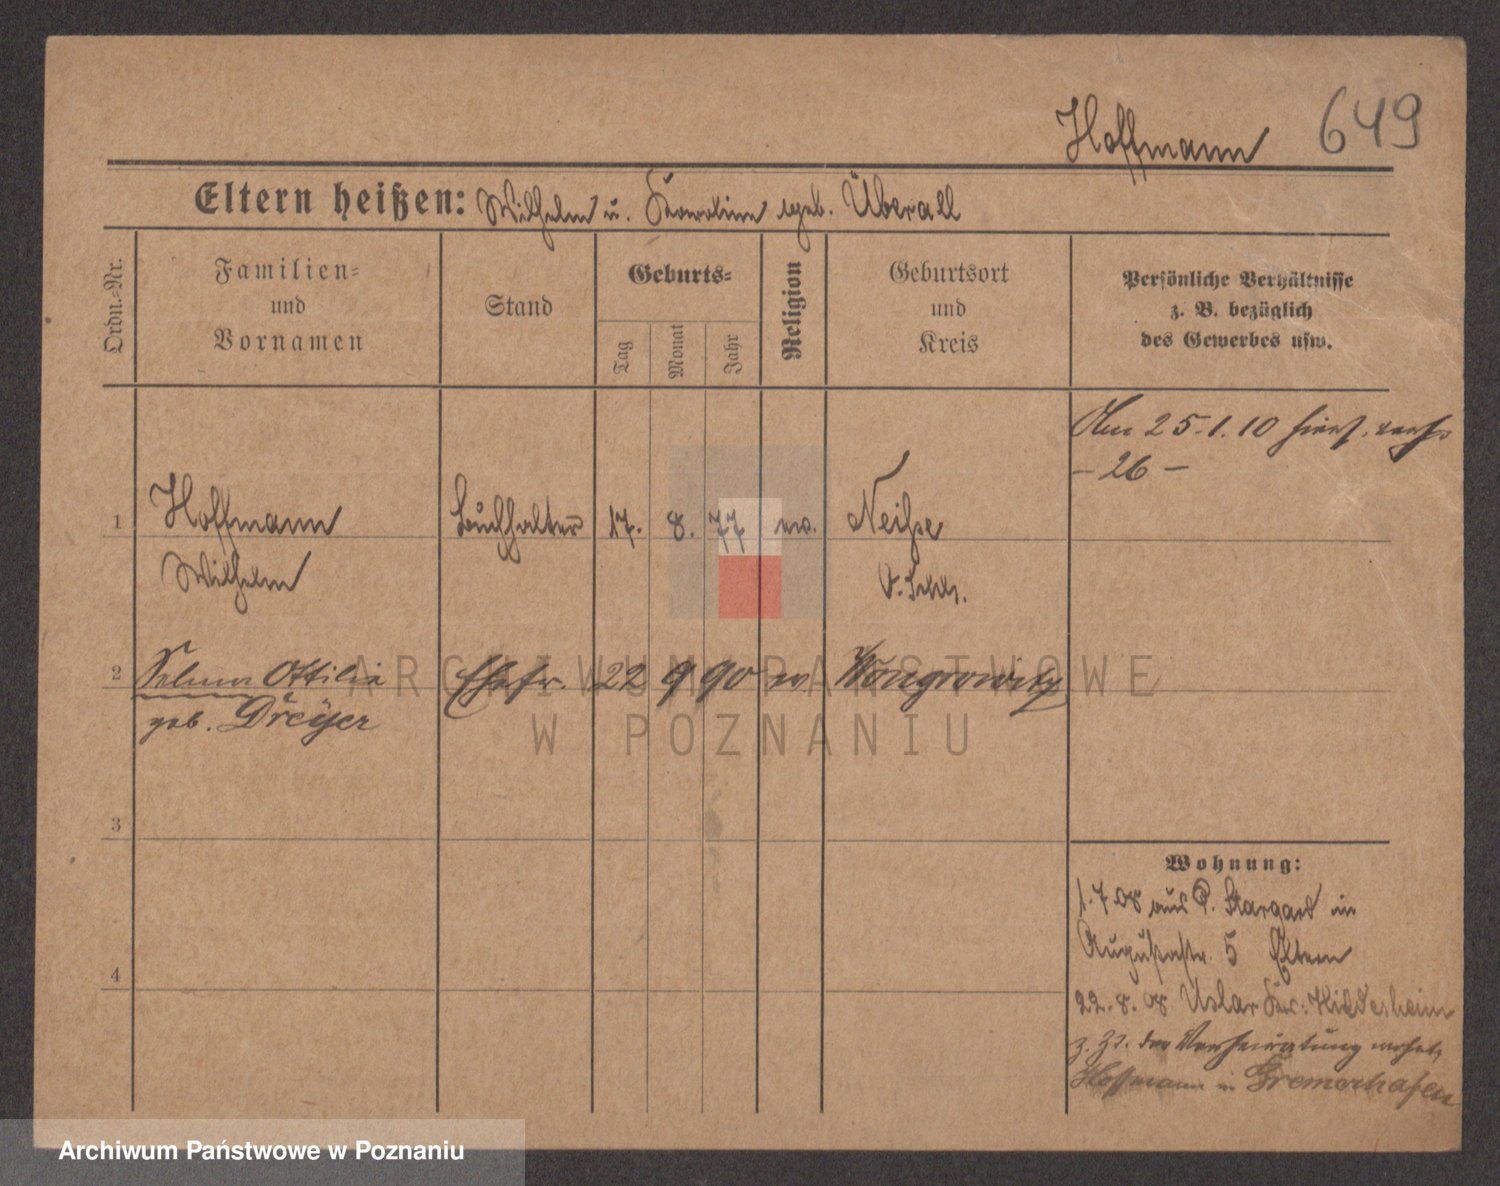 Hoffmann 649
Eltern heißen: Wilhelm u. Karoline geb. Überall
Ordn.-Nr.
Familien-
und
Vornamen
Stand
Geburts-
Tag
Monat
Jahr
Religion
Geburtsort
und
Kreis
Persönliche Verhältnisse
z. B. bezüglich
des Gewerbes usw.
Am 25.1.10 hiers. verh.
- 26 -
1 Hoffmann Buchhalter 17. 8. 77 ev. Neiße
Wilhelm O. Schls.
2 Selma Ottilie Ehefr. 22 9 90 ev Wongrowitz
geb. Dreyer
3
4
Wohnung:
1.7.08 aus P. Stargard in
Augustastr. 5 Eltern
22.8.08 Uslar Kr. Hildesheim
z. Zt. der Verheiratung wohnt
Hoffmann in Bremerhafen
ARCHIWUM PAŃSTWOWE
W POZNANIU
Archiwum Państwowe w Poznaniu